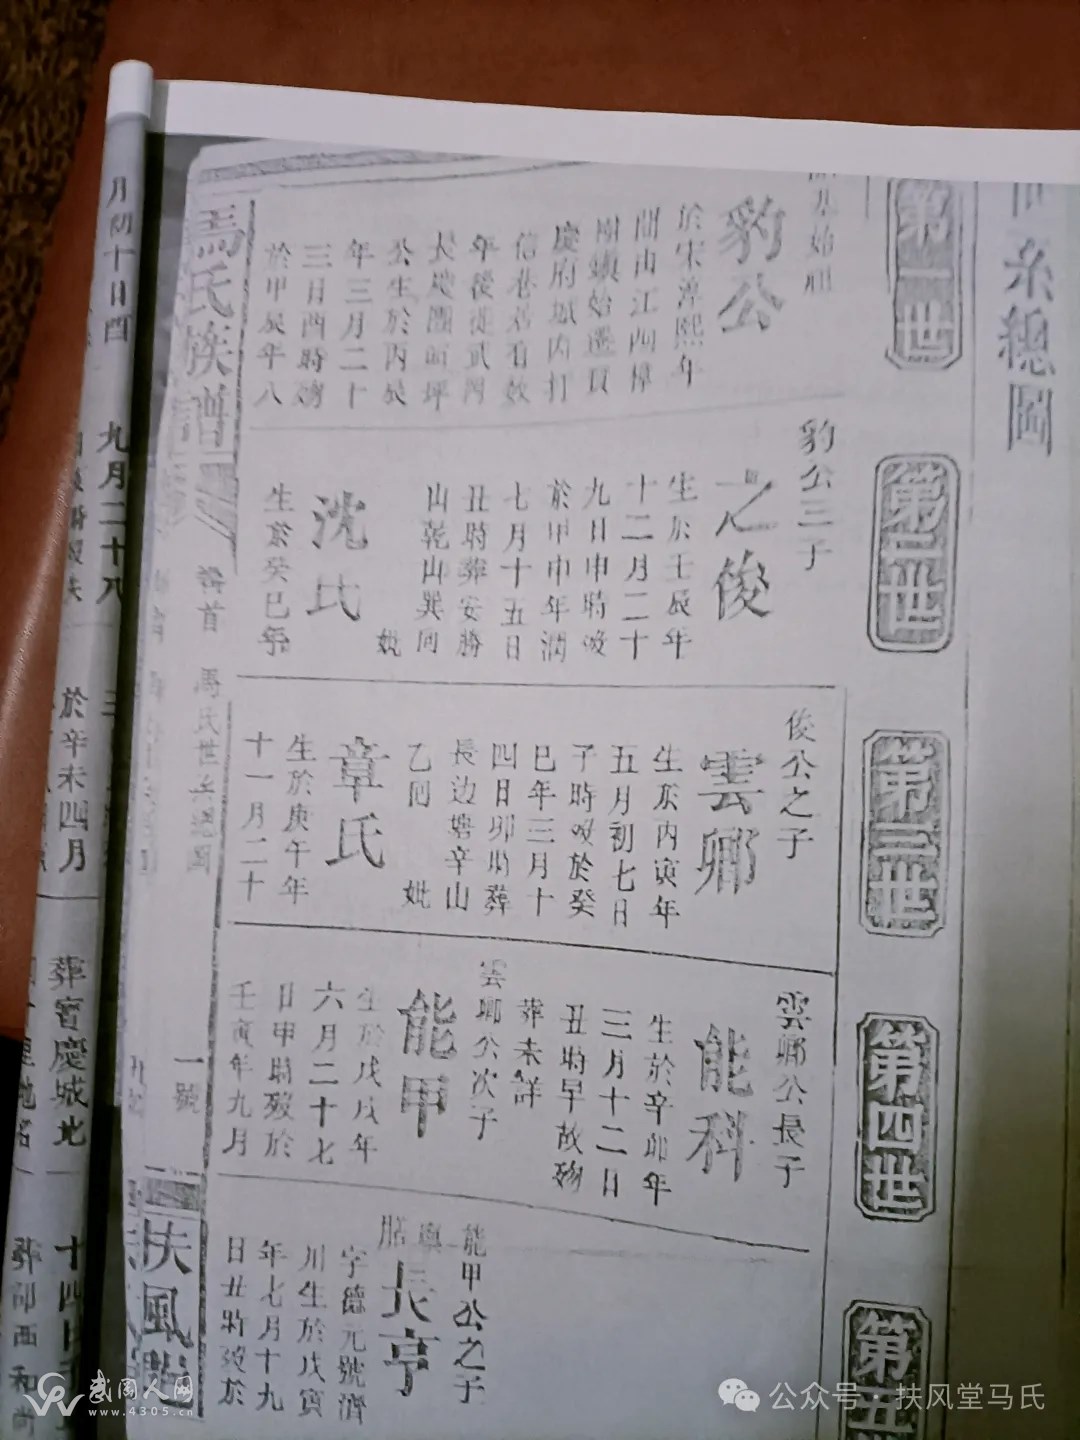 系總圖
第一世
始祖
豹公
於宋淳熙年
間由江西樟
樹鎮始遷寶
慶府城內打
信巷居有數
年後徙武岡
公生於丙辰
年三月二十
三日酉時歿
於甲辰年八
第二世
豹公三子
之俊
生於壬辰年
十二月二十
九日申時歿
於甲申年潤
七月十五日
丑時葬安勝
山乾山巽向
妣
沈氏
生於癸巳年
第三世
俊公之子
雲卿
生於丙寅年
五月初七日
子時歿於癸
巳年三月十
四日卯時葬
長边塘辛山
乙向
妣
章氏
生於庚午年
十一月二十
第四世
雲卿公長子
能科
生於辛卯年
三月十二日
丑時早故歿
葬未詳
雲卿公次子
能甲
生於戊戌年
六月二十七
日甲時歿於
壬寅年九月
第五世
能甲公之子
長亨
字德元號濟
川生於戊寅
年七月十九
日丑時歿於
馬氏族譜
卷首
馬氏世系總圖
一號
扶風堂
九月二十八
於辛未四月
葬寶慶城北
十四日
月初十日酉
武冈人网
www.4305.cn
公众号·扶风堂马氏